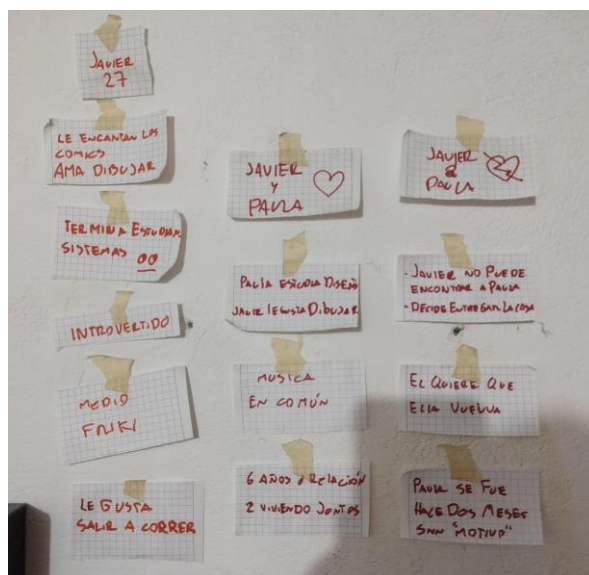 JAVIER
27
LE ENCANTAN LOS
COMICS
AMA DIBUJAR
TERMINA ESTUDIAR
SISTEMAS
INTROVERTIDO
MEDIO
FRIKI
LE GUSTA
SALIR A CORRER
JAVIER
Y
PAULA
PAULA ESTUDIA DISEÑO
JAVIER LE GUSTA DIBUJAR
MUSICA
EN COMÚN
6 AÑOS d RELACIÓN
2 VIVIENDO JUNTOS
JAVIER
&
PAULA
- JAVIER NO PUEDE
ENCONTRAR A PAULA
- DECIDE ENTREGAR LA CASA
EL QUIERE QUE
ELLA VUELVA
PAULA SE FUE
HACE DOS MESES
SIN "MOTIVO"